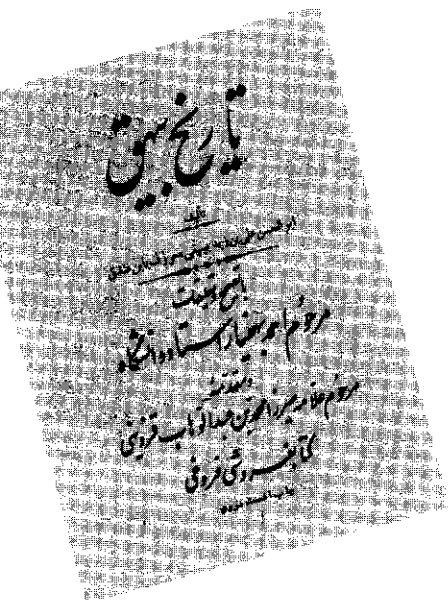 تاریخ بیهق
تألیف
ابوالحسن علی بن زید بیهقی معروف بابن فندق
با تصحیح و تعلیقات
مرحوم احمد بهمنیار استاد دانشگاه
و مقدمه
مرحوم علامه میرزا محمد بن عبدالوهاب قزوینی
کتابفروشی فروغی
چاپ